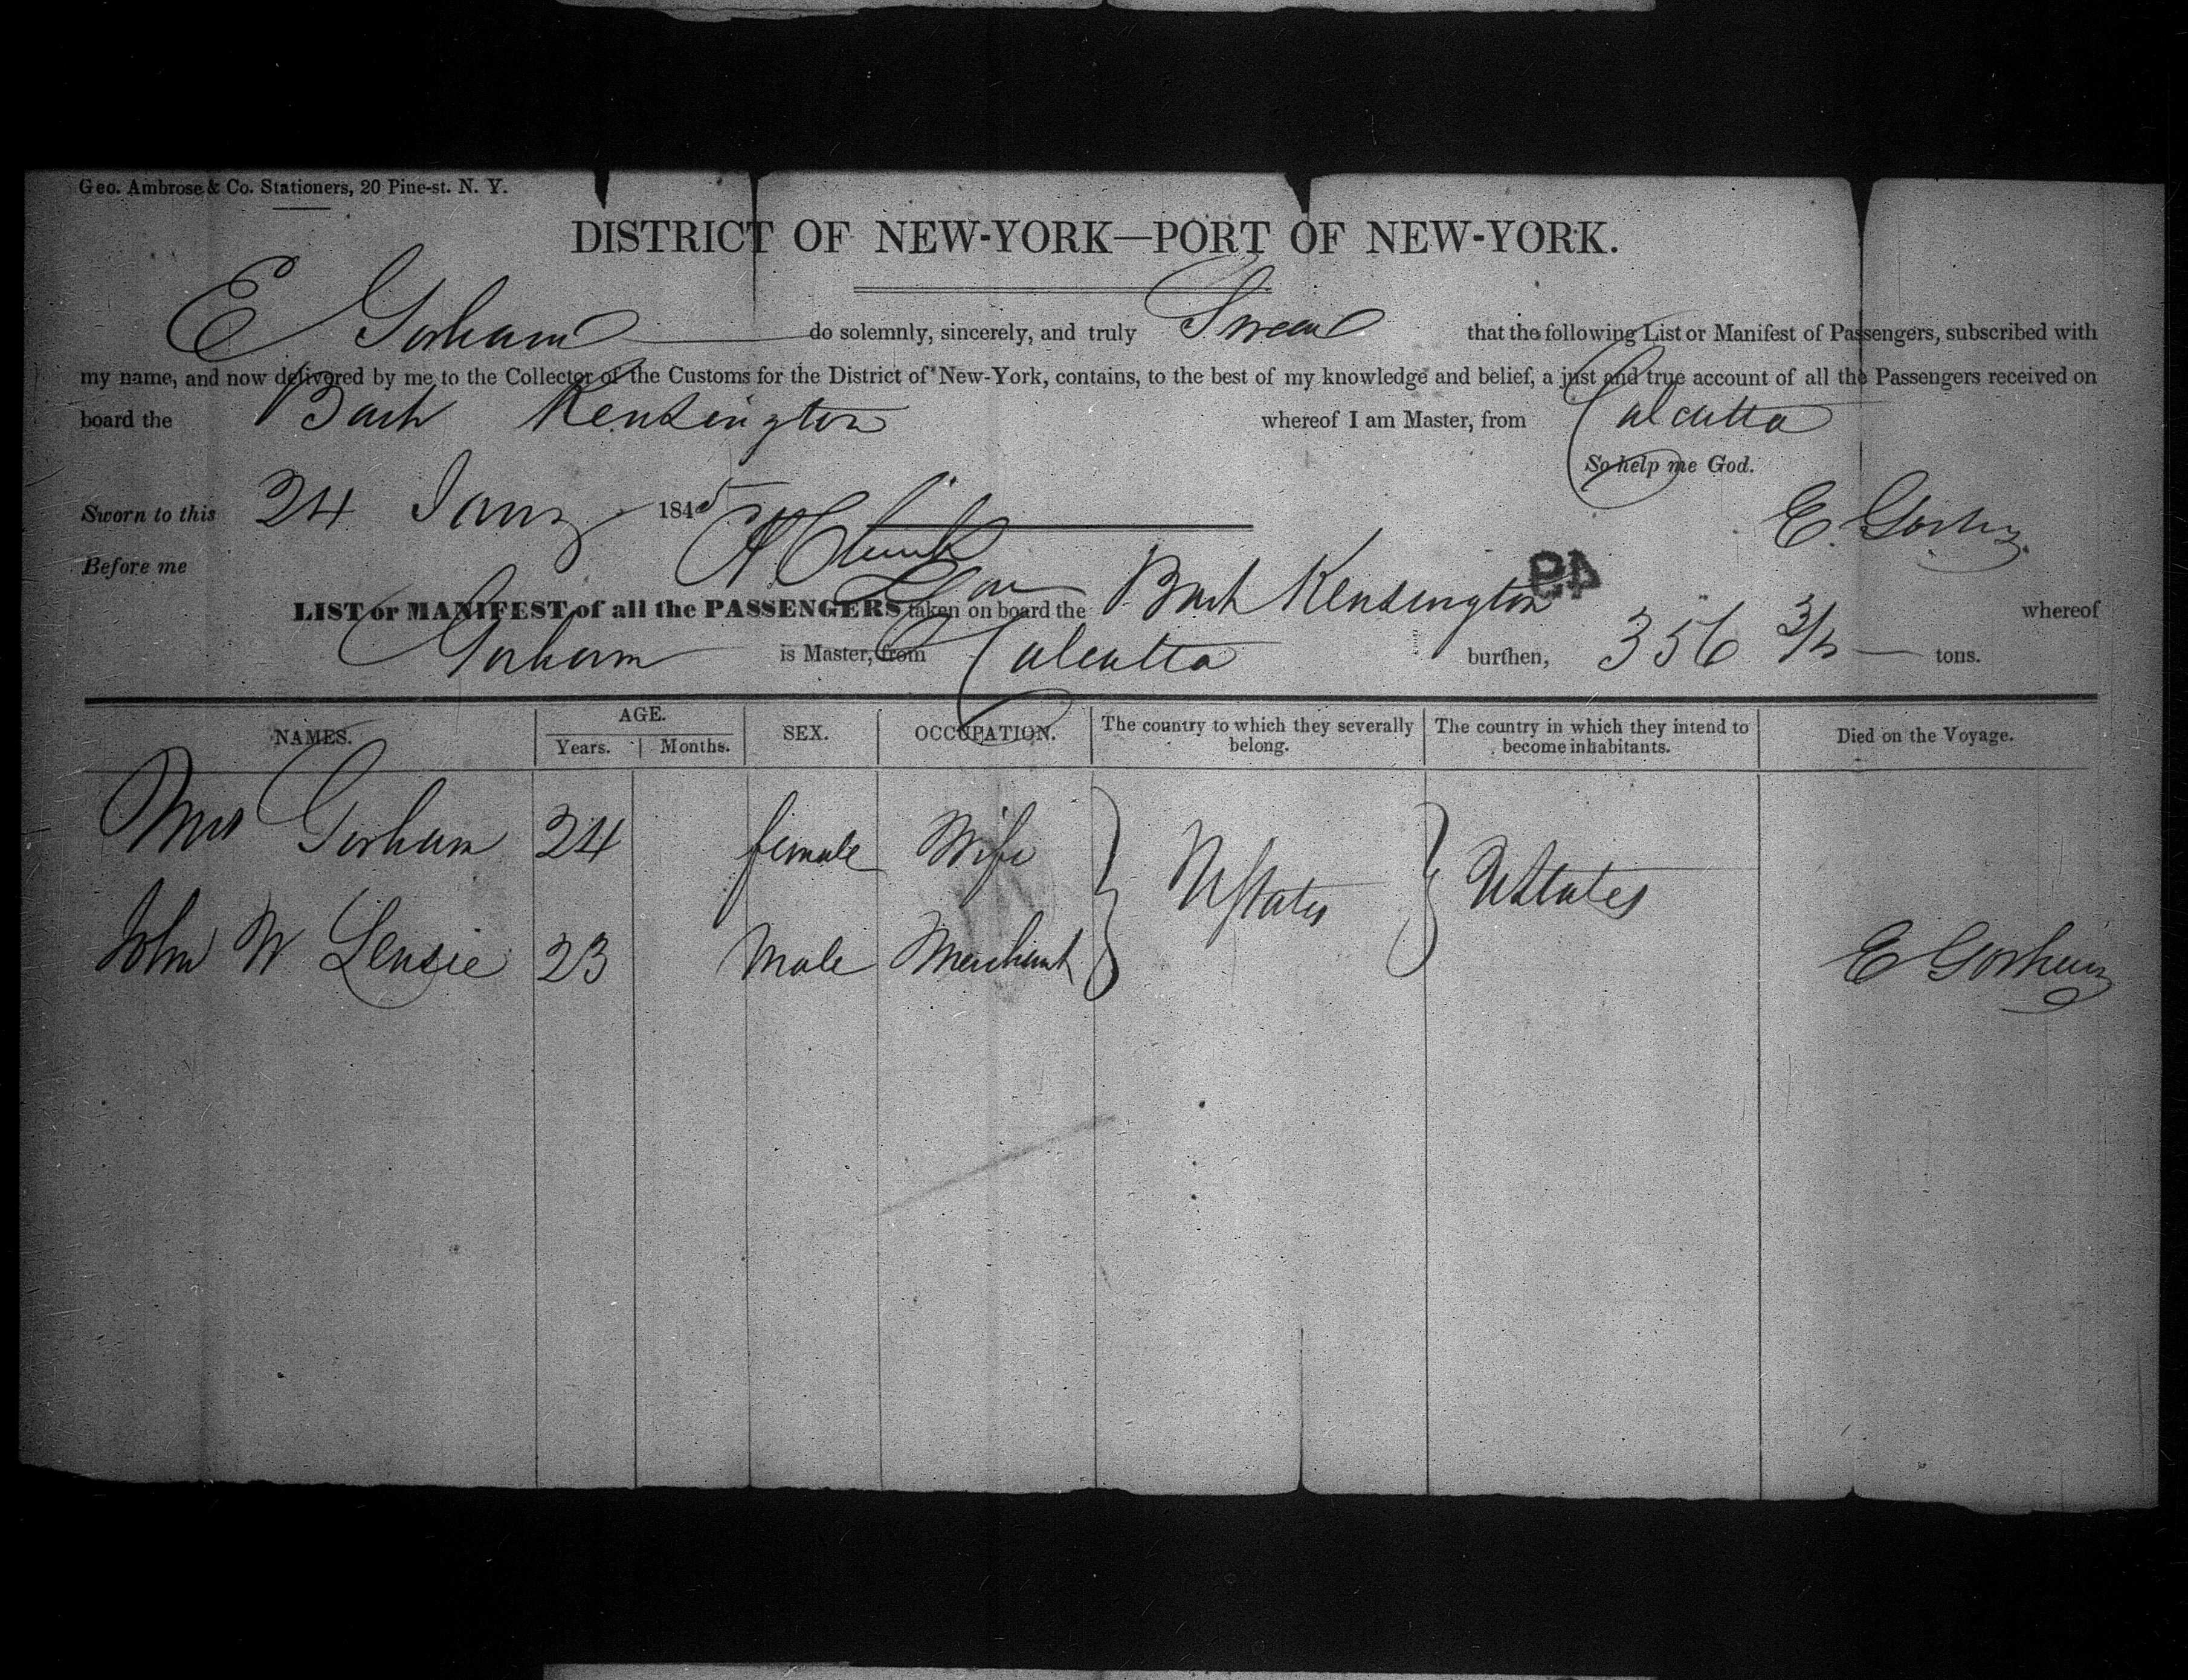 Geo. Ambrose & Co. Stationers, 20 Pine-st. N. Y.
DISTRICT OF NEW-YORK—PORT OF NEW-YORK.
E Gorham do solemnly, sincerely, and truly Swear that the following List or Manifest of Passengers, subscribed with
my name, and now delivered by me to the Collector of the Customs for the District of New-York, contains, to the best of my knowledge and belief, a just and true account of all the Passengers received on
board the Bark Kensington whereof I am Master, from Calcutta
So help me God.
Sworn to this 24 Jany 1845 E. Gorham
Before me
LIST or MANIFEST of all the PASSENGERS taken on board the Bark Kensington whereof
Gorham is Master, from Calcutta burthen, 356 tons.
NAMES. AGE. Years. Months. SEX. OCCUPATION. The country to which they severally belong. The country in which they intend to become inhabitants. Died on the Voyage.
Mrs Gorham 24 female Wife
UStates UStates
John W 23 Male Merchant
E Gorham